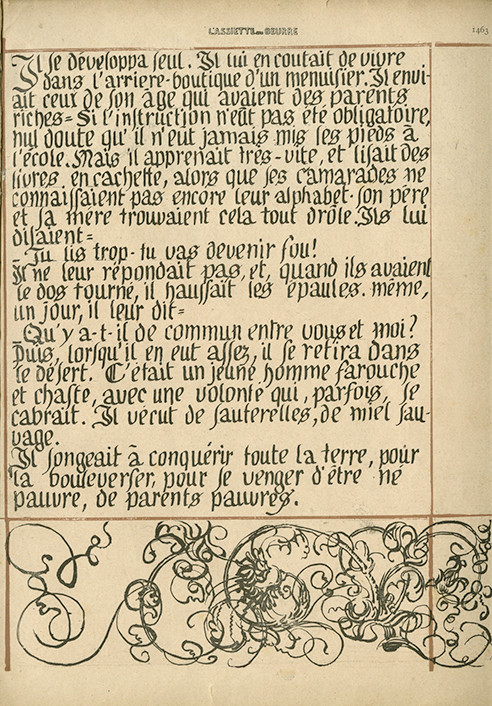 L'ASSIETTE au BEURRE
1463
Il se développa seul. Il lui en coûtait de vivre
dans l'arrière-boutique d'un menuisier. Il envi-
ait ceux de son âge qui avaient des parents
riches = Si l'instruction n'eût pas été obligatoire,
nul doute qu'il n'eût jamais mis ses pieds à
l'école. Mais il apprenait très-vite, et lisait des
livres en cachette, alors que ses camarades ne
connaissaient pas encore leur alphabet. Son père
et sa mère trouvaient cela tout drôle. Ils lui
disaient =
_ Tu lis trop. tu vas devenir fou!
Il ne leur répondait pas, et, quand ils avaient
le dos tourné, il haussait les épaules. même,
un jour, il leur dit =
_ Qu'y a-t-il de commun entre vous et moi?
Puis, lorsqu'il en eut assez, il se retira dans
le désert. C'était un jeune homme farouche
et chaste, avec une volonté qui, parfois, se
cabrait. Il vécut de sauterelles, de miel sau-
vage.
Il songeait à conquérir toute la terre, pour
la bouleverser, pour se venger d'être né
pauvre, de parents pauvres.